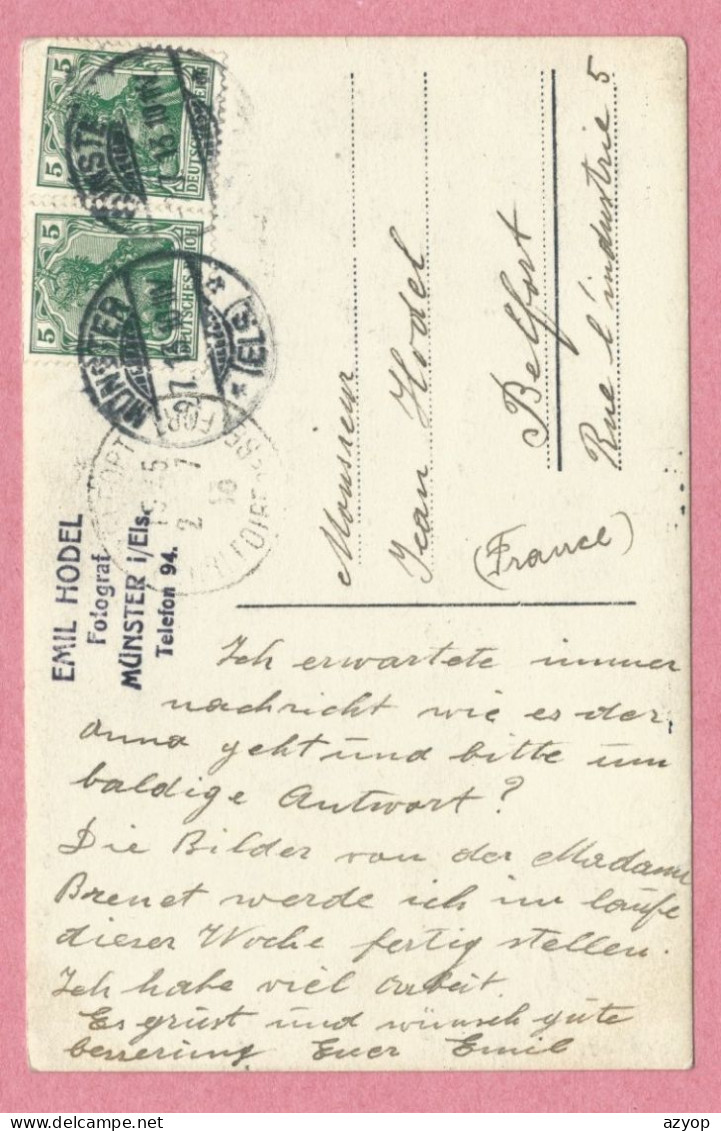 5 5
DEUTSCHES REICH
5 5
DEUTSCHES REICH
MÜNSTER
(ELS)
EMIL HODEL
Fotograf
MÜNSTER i/Els.
Telefon 94.
Monsieur
Jean Hodel
Belfort
Rue l'industrie 5
(France)
Ich erwartete immer
nachricht wie es der
Anna geht und bitte um
baldige Antwort?
Die Bilder von der Madame
Brenet werde ich im laufe
dieser Woche fertig stellen.
Ich habe viel Arbeit.
Es grüst und wünsch gute
besserung Euer Emil
azyop